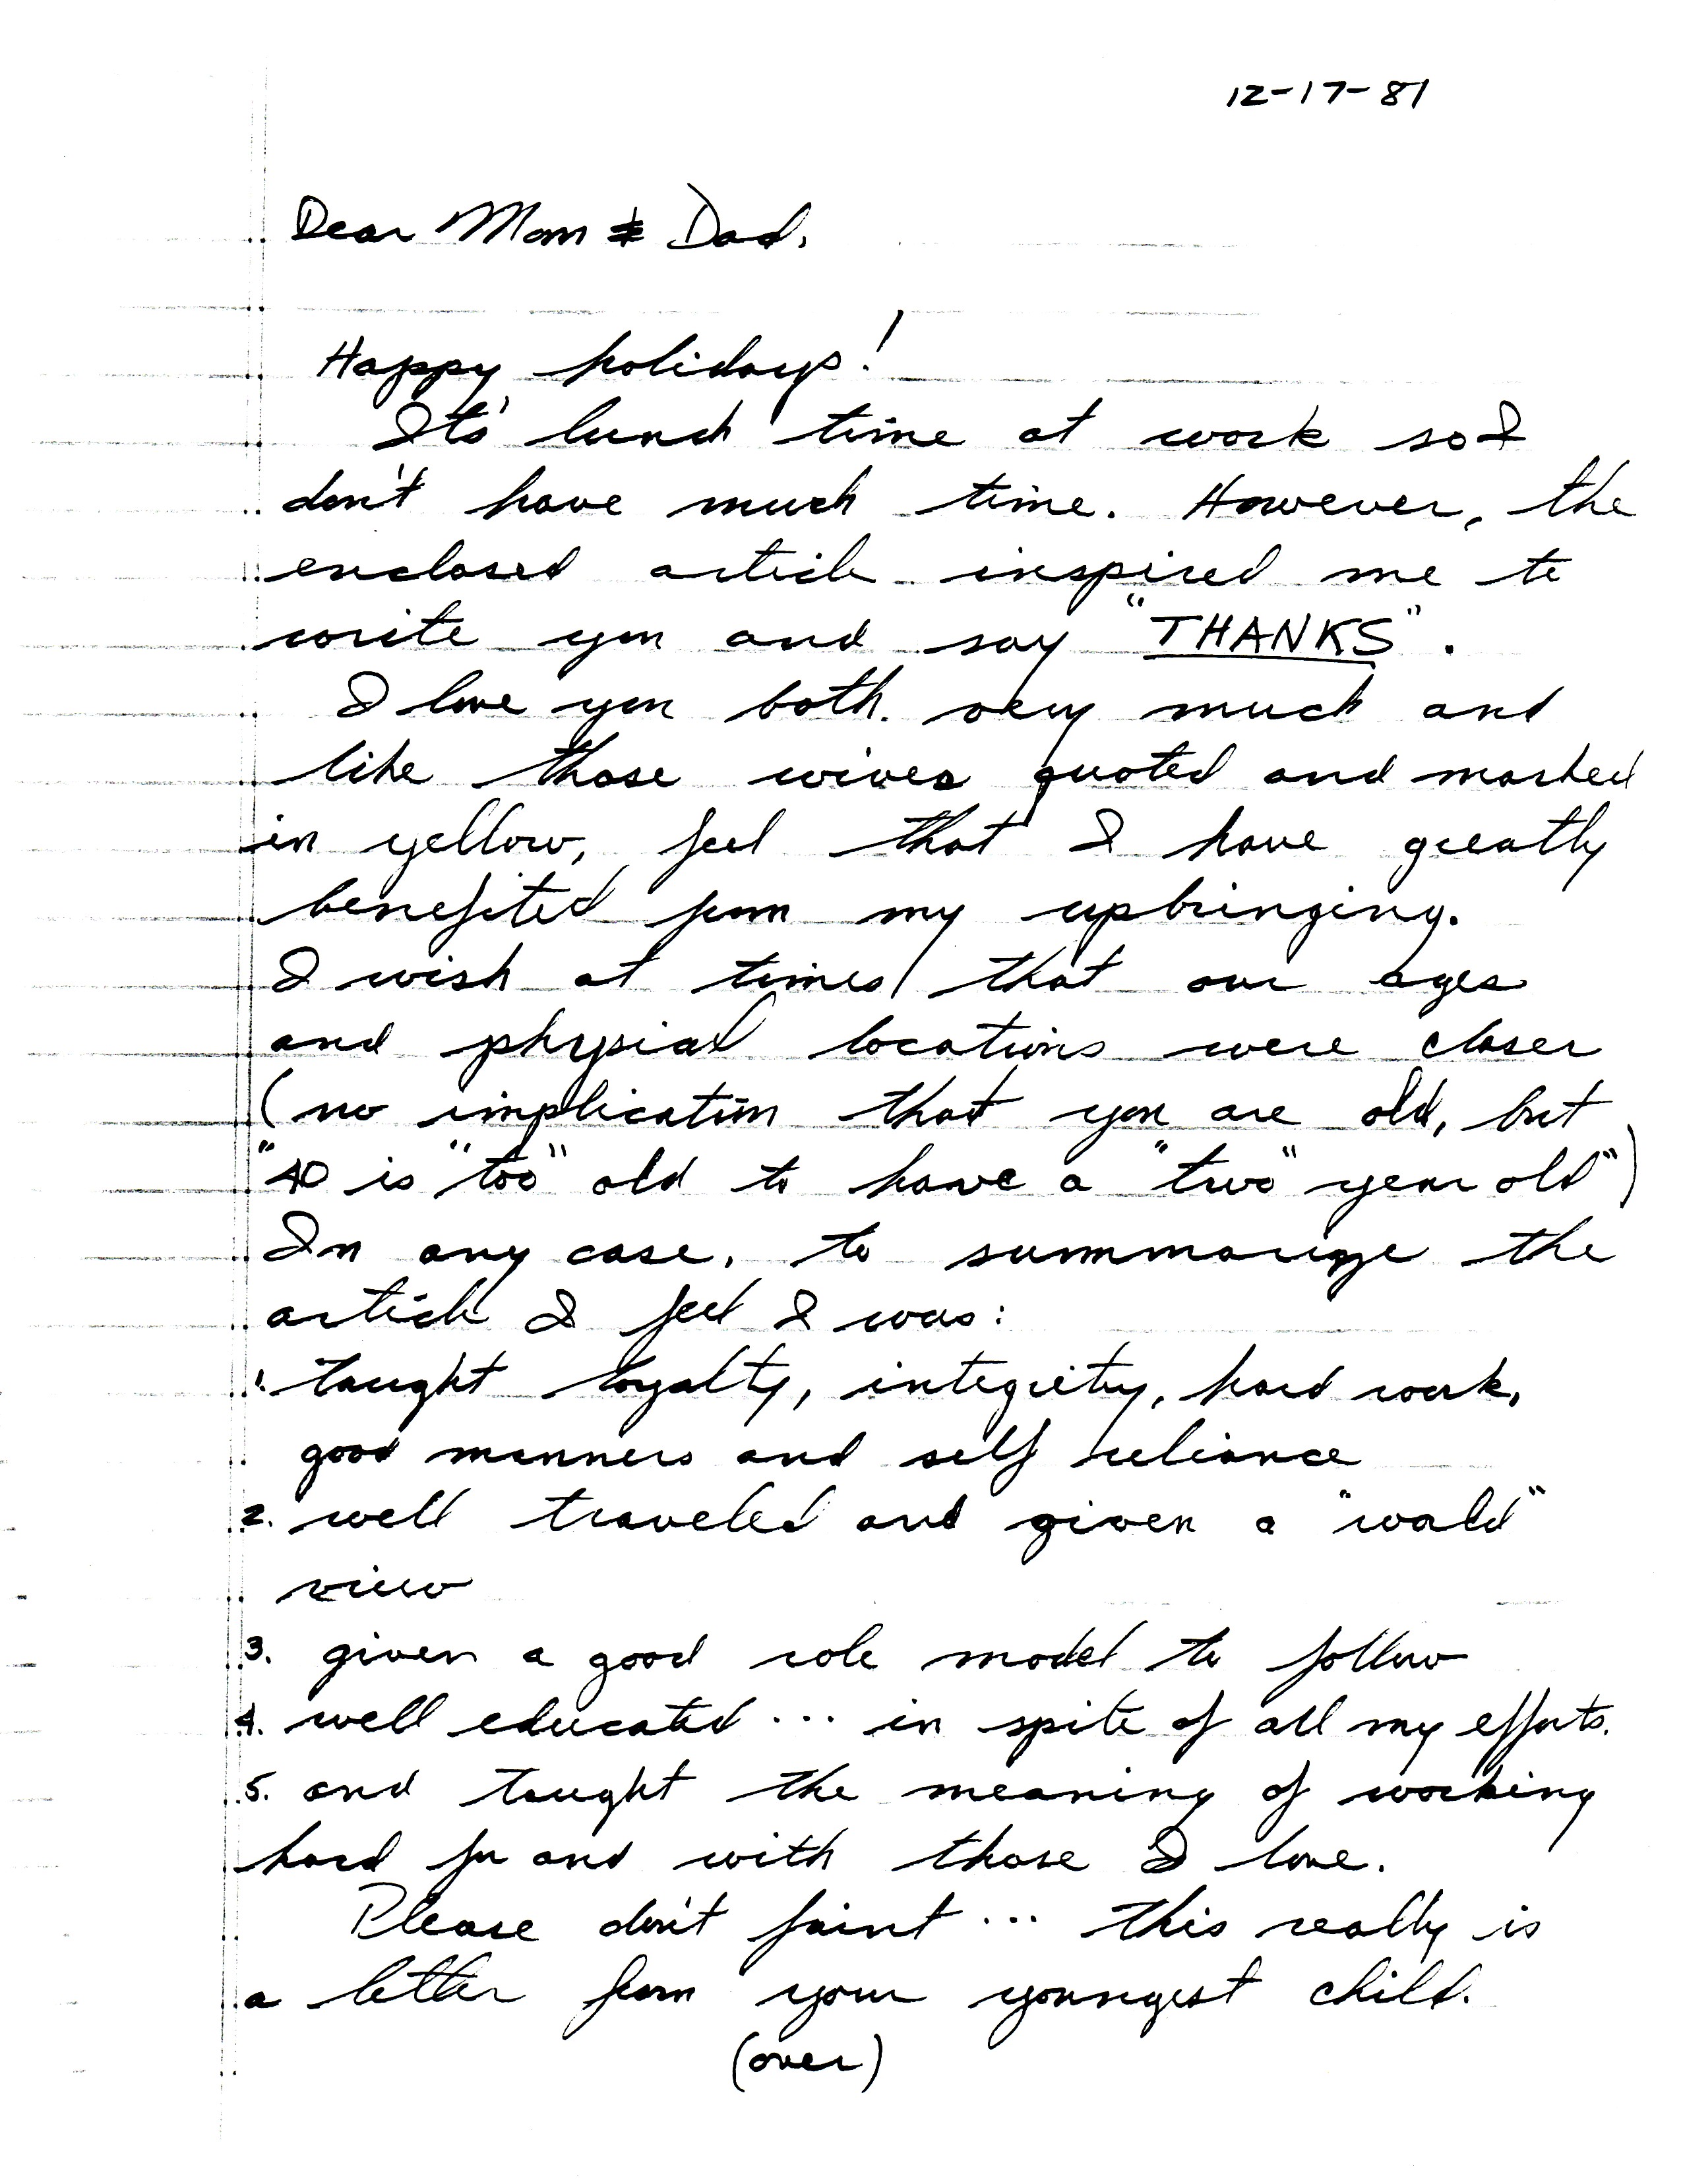 12-17-81
Dear Mom & Dad,
Happy holidays!
It's lunch time at work so I
don't have much time. However, the
enclosed article inspired me to
write you and say "THANKS".
I love you both very much and
like those wives quoted and marked
in yellow, feel that I have greatly
benefited from my upbringing.
I wish at times that our ages
and physical locations were closer
(no implication that you are old, but
"40 is "too" old to have a "two" year old")
In any case, to summarize the
article I feel I was:
1. taught loyalty, integrity, hard work,
good manners and self reliance
2. well traveled and given a "world"
view
3. given a good role model to follow
4. well educated ... in spite of all my efforts.
5. and taught the meaning of working
hard for and with those I love.
Please don't faint ... this really is
a letter from your youngest child.
(over)